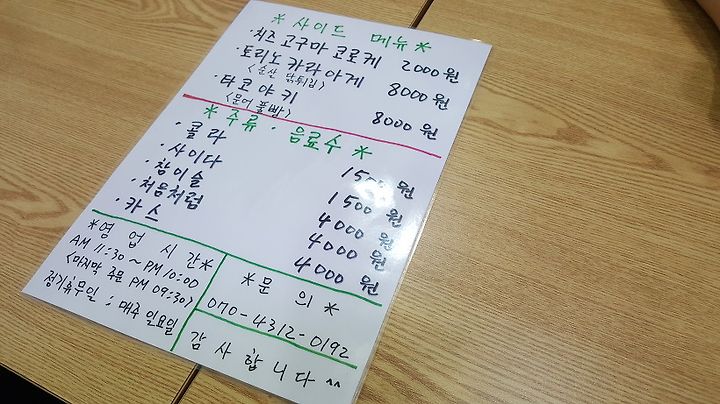 * 사이드 메뉴 *
· 치즈 고구마 코로케 2000원
· 토리노 카라아게 8000원
<순살 닭튀김>
· 타코야키 8000원
<문어 풀빵>
* 주류 · 음료수 *
· 콜라 1500원
· 사이다 1500원
· 참이슬 4000원
· 처음처럼 4000원
· 카스 4000원
*영업시간*
AM 11:30 ~ PM 10:00
<마지막 주문 PM 09:30>
정기휴무일 ; 매주 일요일
*문의*
070-4312-0192
감사합니다 ^^